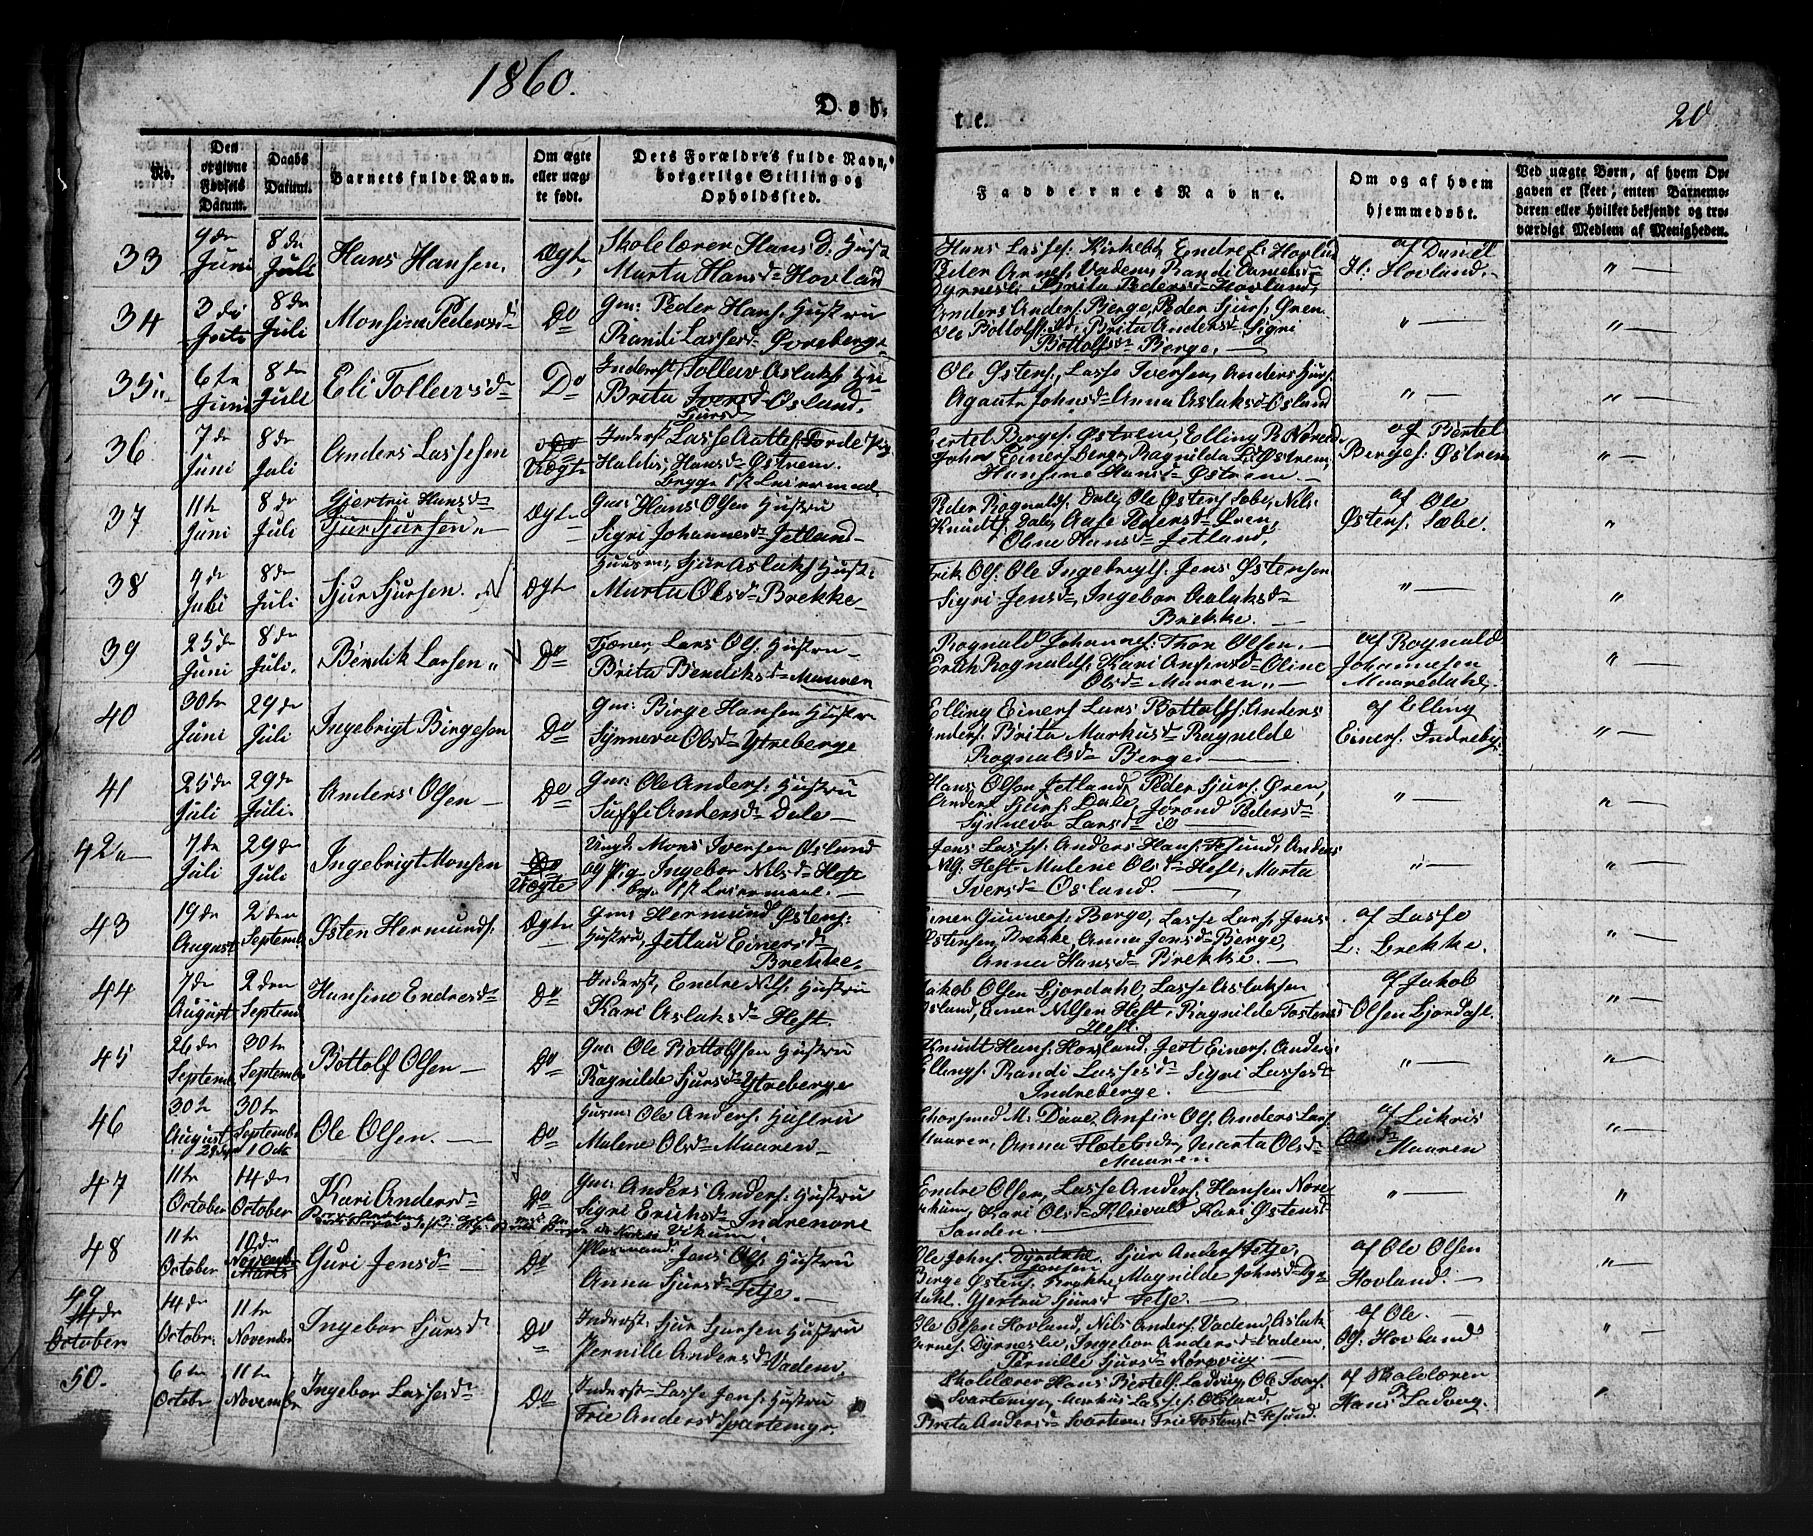 1860.
Døb-
te.
20
No.
Den opgivne Fødsels Datum.
Daabs Datum.
Barnets fulde Navn.
Om ægte eller uægte født.
Dets Forældres fulde Navn, borgerlige Stilling og Opholdssted.
Faddernes Navne.
Om og af hvem hjemmedøbt.
Ved uægte Børn, af hvem Opgaven er skeet; enten Barnemoderen eller hvilket bekjendt og troværdigt Medlem af Menigheden.
33
9de Juni
8de Juli
Hans Hansen.
Ægte
Skolelærer Hans D. Hust
Marta Hansd Hovland
Hans Lasses. Kirkebø, Endre E. Hovland
Peder Arnes. Vadem, Randi Arnesd
Dyrnesli Brita Pedersd Hovland,
af Daniel
H: Hovland.
34
3di
8de Juli
Monsina Pedersd
Do
Gm: Peder Hans. Hustru
Randi Lassesd Øvreberge
Anders Anders. Berge, Peder Sjurs. Øren
Ole Bottolfs. Do, Brita Andersd Sigri
Bottolfsd Berge.
35
6te Juni
8de Juli
Eli Tollevsd
Do
Inderst Tollev Aslaks. Hu
Brita Iversd Osland.
Sjursd
Ole Østens, Lasse Iversen, Anders
Agaute Johnsd Anna Aslaksd Osland
36
7de Juni
8de Juli
Anders Lassesen
Do
Uægte
Inderst Lasse
Haldis Hansd Østrem.
begge 1st Leiermaal.
Bertel Berges. Østrem, Elling R. Nore
John Einers. Berge, Ragnilda Østrem,
Hansine Hansd Østrem
af Bertel
Berges: Østrem
37
11te Juni
8de Juli
Gjertru Hansd
Sjur Sjursen
Ægte
Gm: Hans Olsen Hustru
Sigri Johannesd Jetland
Peder Rognalds. Dale, Ole Østens. Sæbe, Nils
Knudts. Dale, Aase Pedersd Øren,
Oline Hansd Jetland,
af Ole
Østens. Sæbe.
38
9de Juli
8de Juli
Sjur Sjursen.
Ægte
Huusm, Sjur Aslaks. Hust:
Marta Olsd Brekke
Erik Ols. Ole Ingebrigts. Jens Østensen
Sigri Jensd, Ingebor Aslaksd
Brekke.
39
25de Juni
8de Juli.
Bendik Larsen
Do
Tjener Lars Ols. Hustru
Brita Bendiksd Maaren
Rognald Johannes: Thor Olsen,
Erich Rognalds. Kari Ansensd Oline
Olsd Maaren
af Rognald
Johannesen
Maaredahl.
40
30te Juni
29de Juli
Ingebrigt Birgesen
Do
Gm: Birge Hansen Hustru
Synneva Olsd Ytreberge
Elling Einers. Lars Bottolfs. Anders
Anders. Brita Markusd Ragnilde
Rognalsd Berge
af Elling
Einers. Indreby.
41
25de Juli
29de Juli.
Anders Olsen
Do
Gm: Ole Anders. Hustru
Siffi Andersd Dale
Hans Olsen Jetland, Peder Sjurs. Øren,
Anders Sjurs. Dale, Jorond Pedersd
Synneva Larsd
42
7de Juli
29de Juli
Ingebrigt Monsen
Do
Uægte
Ungk. Mons Iversen Osland
og Pig Ingebor Nilsd Heft
begge 1st Leiermaal.
Jens Lasses. Anders Hans. Tesund, Anders
Nils. Heft Malene Olsd Heft, Marta
Iversd Osland.
43
19de August
2den Septemb
Østen Hermunds.
Ægte
Gm: Hermund Østens:
Hustru, Jetlau Einersd
Brekke.
Einer Gunners. Berge, Lasse Lars, Jens
Østensen, Brekke, Anna Jensd Berge,
Anna Hansd Brekke.
af Lasse
L: Brekke.
44
7de August
2den Septemb
Hansine Endresd
Do
Inderst, Endre Nils. Hustru
Kari Aslaksd Heft.
Jakob Olsen Ljordahl, Lasse Aslaksen
Osland, Einer Nilsen Heft, Ragnilde Tostens
Heft
af Jakob
Olsen Ljordahl.
45
26de Septemb
30te Septembr
Bottolf Olsen
Do
Gm: Ole Bottolfsen Hustru
Ragnilde Sjursd Ytreberge
Knudt Hans. Hovland, Jest Einers. Anders
Ellings. Randi Lassesd Sigri Lassesd
Indreberge.
46
30te August
30te Septembr
29 Sept
1 Oct
Ole Olsen.
Do
Husm: Ole Anders. Hustru
Malene Olsd Maaren
Thormod M. Daae, Anfin Ols. Anders Lars.
Maaren, Anna, Marta Olsd
Maaren
af
Maaren
47
11te October
14de October
Kari Andersd
Do
Gm: Anders Anders. Hustru
Sigri Erichsd Indrenore
Vikum.
Endre Olsen, Lasse Anders. Hansen Nore
Vikum, Kari Olsd Kleivald Kari Østensd
Sanden
48
11te October
Novemb
Marts
Guri Jensd
Do
Plasmand Jens Ols. Hustru
Anna Sjursd Fetje.
Ole Johns. Dyrdahl, Sjur Anders. Fetje,
Jensen
Berge Østens. Brekke, Magnilde Johnsd Dyr
dahl. Gjertru Sjursd Fetje.
af Ole Olsen
Hovland.
49
14de
October
14de October
11te November
Ingebor Sjursd
Do
Inderst. Sjur Sjursen Hustru
Pernille Andersd Vadem,
Ole Olsen Hovland, Nils Anders. Vadem, Aslak
Arnes. Dyrneslie, Ingebor Andersd Vadem
Pernille Sjursd Rørvig
af Ole.
Ols. Hovland
50.
6te October
11te Novembr
Ingebor Lassesd
Do
Inderst Lasse Jens. Hustru
Frie Andersd Svartemyr.
Skolelærer Hans Bertels. Ladvig, Ole Ivars.
Svartemyr, Markus Lasses. Osland,
Brita Andersd Svartem. Frie Tostensd Tesund.
af Skolelæren
Hans B. Ladvig.